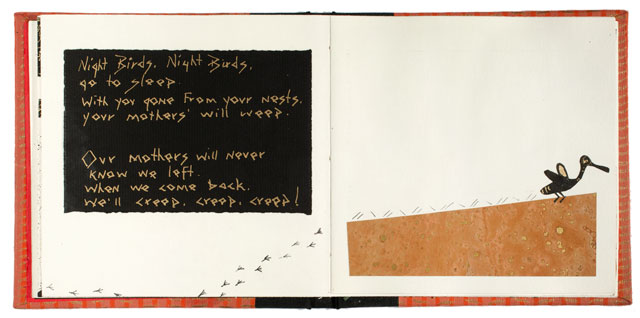 Night Birds, Night Birds,
go to sleep.
With you gone From your nests,
your mothers' will weep.
Our mothers will never
know we left.
When we come back,
we'll creep, creep, creep!